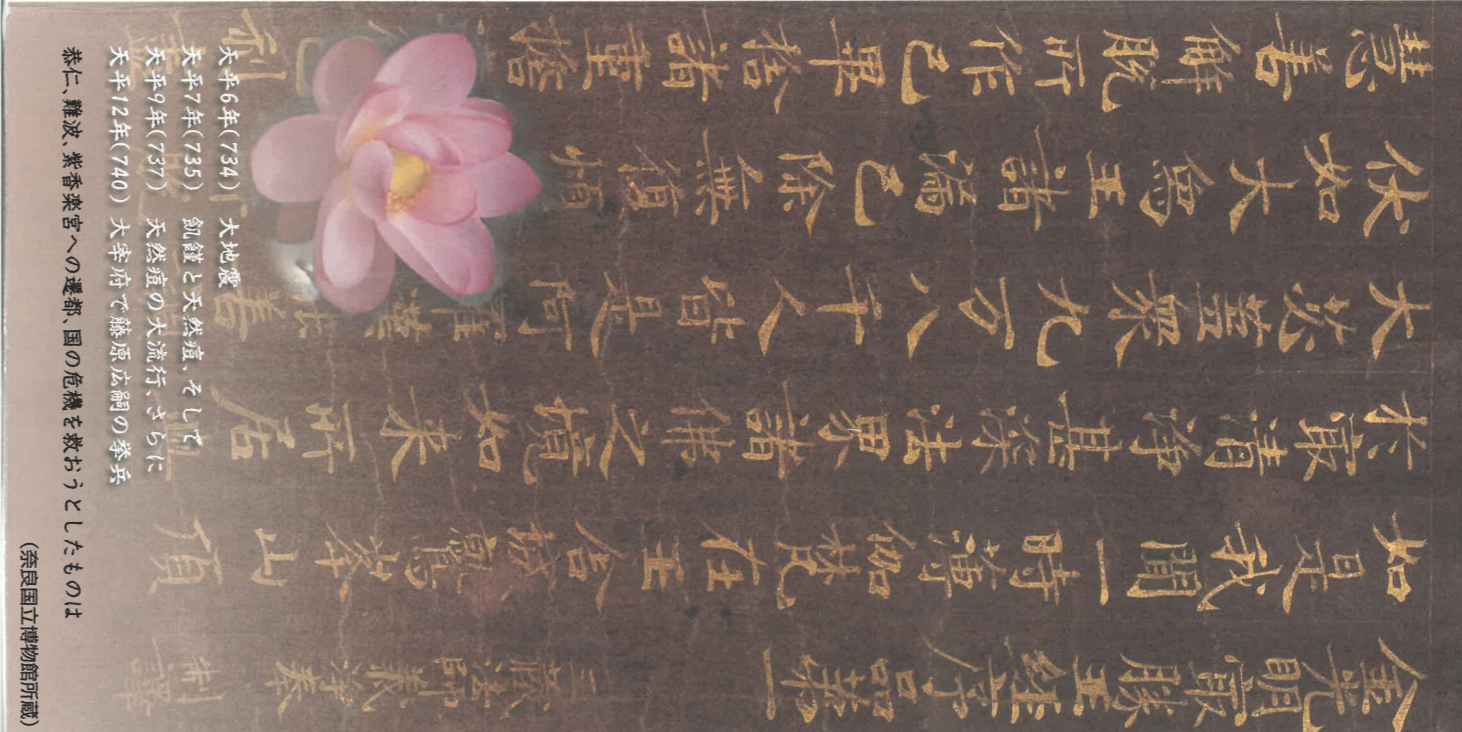 金光明最勝王經序品第一 三藏法師義淨奉 制譯
如是我聞一時薄伽梵在王舍城鷲峯山頂
於最清淨甚深法界諸佛之境如來所居
大苾芻衆九万八千人皆是阿羅漢能善
伏如大象王諸漏已除無復煩
慧善解脫所作已畢捨諸重擔 己利
天平6年(734) 大地震
天平7年(735) 飢饉と天然痘、そして
天平9年(737) 天然痘の大流行、さらに
天平12年(740) 大宰府で藤原広嗣の挙兵
恭仁、難波、紫香楽宮への遷都、国の危機を救おうとしたものは
(奈良国立博物館所蔵)